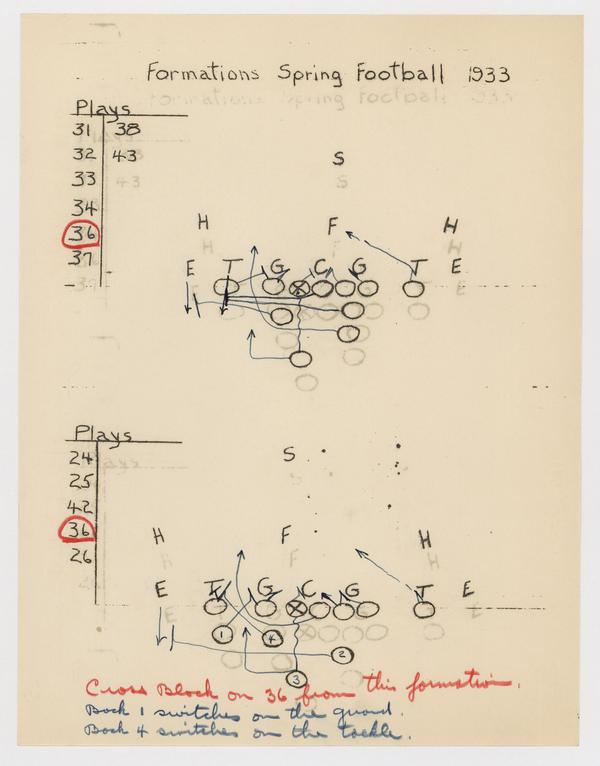 Formations Spring Football 1933
Plays
31 38
32 43
33
34
36
37
S
H F H
E T G C G T E
Plays
24
25
42
36
26
S
H F H
E T G C G T E
1 4 2
3
Cross Block on 36 from this formation.
Back 1 switches on the guard.
Back 4 switches on the tackle.